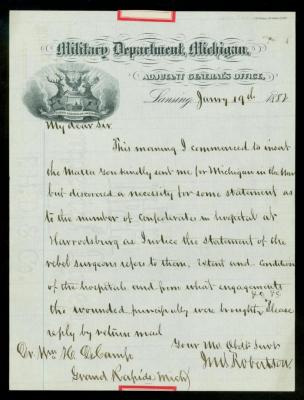 Military Department, Michigan,
ADJUTANT GENERAL'S OFFICE,
Lansing, Jan'y 19th 1882
My dear Sir
This morning I commenced to insert
the Matter you kindly sent me for Michigan in the War
but discovered a necessity for some statement as
to the number of Confederates in hospitals at
Harrodsburg as I notice the statement of the
rebel surgeons refers to them. Extent and condition
of the hospitals and from what engagements
the wounded principally were brought &c &c. Please
reply by return mail
Your Mo Obdt Servt
Jno Robertson
Dr. Wm H. DeCamp
Grand Rapids Mich